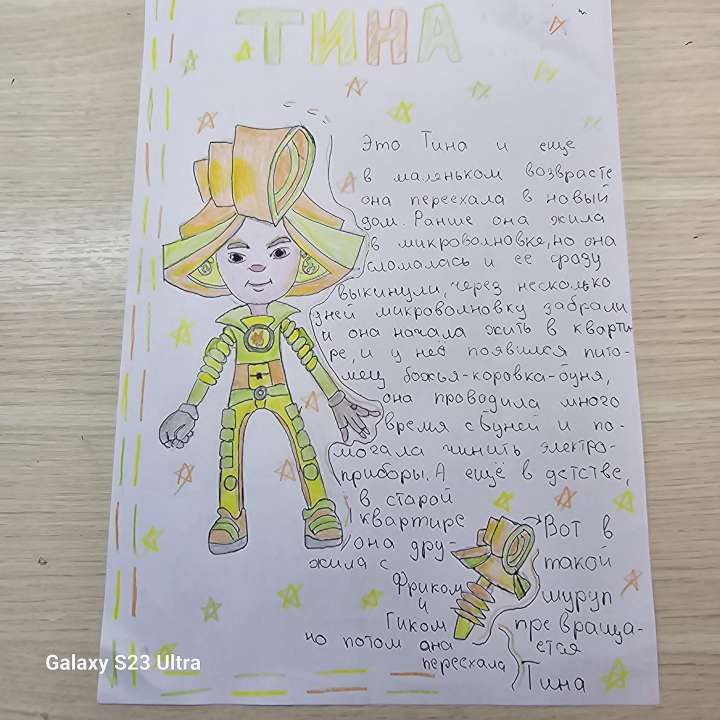 ТИНА
Это Тина и еще
в маленьком возврасте
она переехала в новый
дом. Раньше она жила
в микроволновке, но она
сломалась и ее сразу
выкинули, через несколько
дней микроволновку забрали
и она начала жить в кварти-
ре, и у неё появился пито-
мец божья-коровка-буня,
она проводила много
время с буней и по-
могала чинить электро-
приборы. А ещё в детстве,
в старой
квартире
она дру-
жила с
Фриком
и
Гиком
но потом она
переехала
Вот в
такой
шуруп
превраща-
ется
Тина
Galaxy S23 Ultra